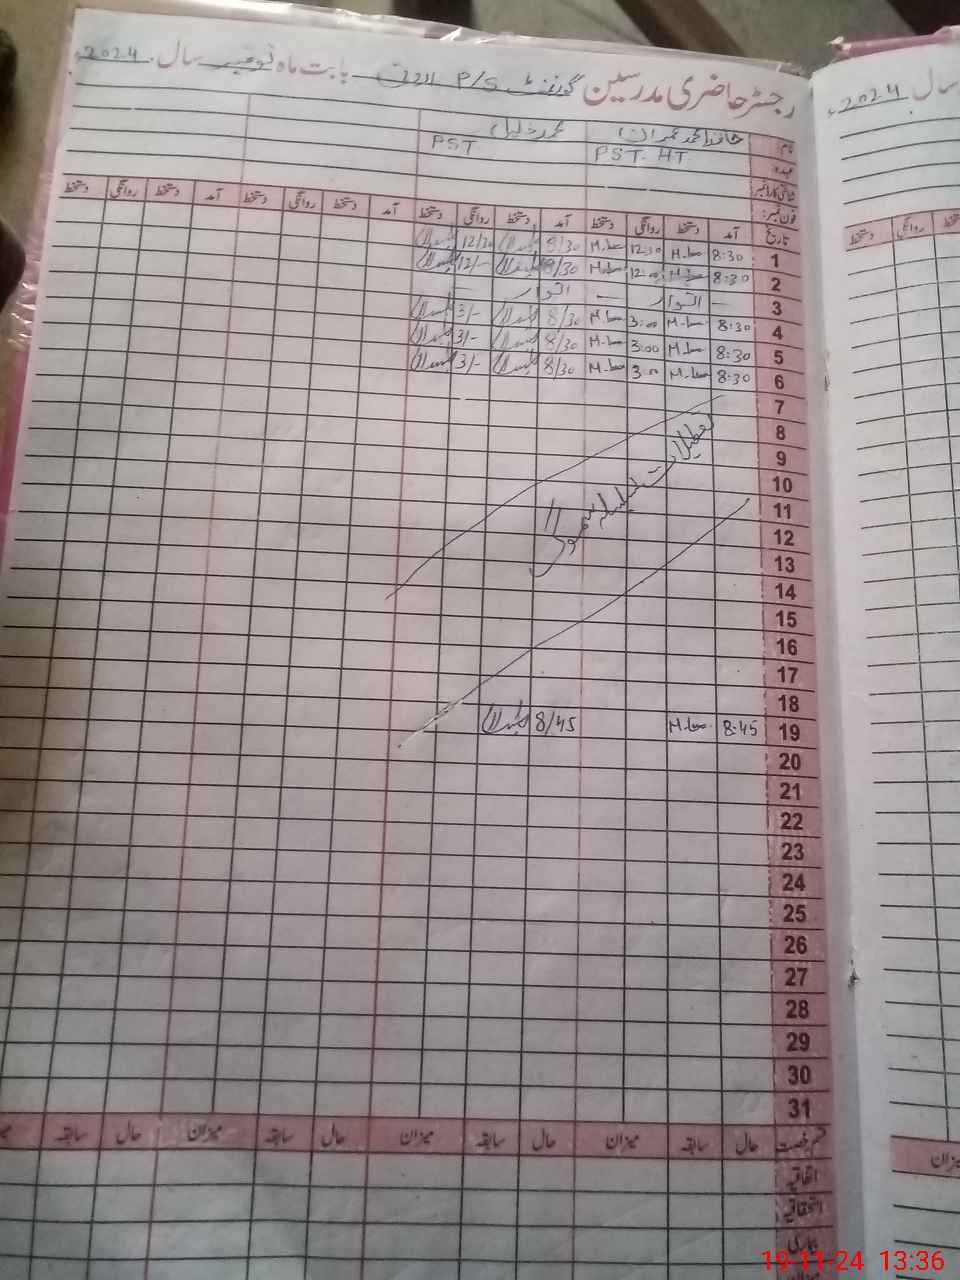 رجسٹر حاضری مدرسین گورنمنٹ P/S بابت ماہ نومبر سال 2024ء
سال 2024ء
نام: حافظ محمد عمران محمد خلیل
عہدہ PST-HT PST
شناختی کارڈ نمبر:
فون نمبر:
تاریخ آمد دستخط روانگی دستخط آمد دستخط روانگی دستخط آمد دستخط روانگی دستخط آمد دستخط روانگی دستخط
دستخط روانگی
1 8:30 12:30 8/30 12/30
2 8:30 12:00 8/30 12/-
3 — اتوار — اتوار —
4 8:30 3:00 8/30 3/-
5 8:30 3:00 8/30 3/-
6 8:30 3:00 8/30 3/-
7
8
9
تعطیلات بسلسلہ سموگ
10
11
12
13
14
15
16
17
18
19 8:45 8/45
20
21
22
23
24
25
26
27
28
29
30
31
قسم رخصت حال سابقہ میزان حال سابقہ میزان حال سابقہ میزان حال سابقہ
میزان
اتفاقیہ
استحقاقیہ
بیماری
میزان
19-11-24 13:36